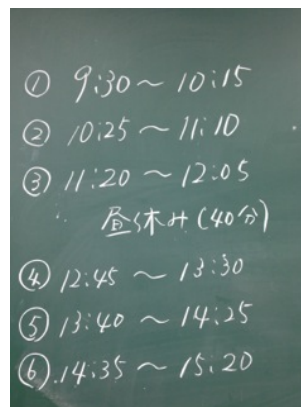 ① 9:30～10:15
② 10:25～11:10
③ 11:20～12:05
昼休み(40分)
④ 12:45～13:30
⑤ 13:40～14:25
⑥ 14:35～15:20